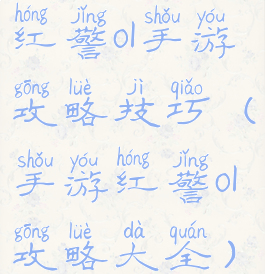 hóng jǐng shǒu yóu
红警01手游
gōng lüè jì qiǎo
攻略技巧(
shǒu yóu hóng jǐng
手游红警01
gōng lüè dà quán
攻略大全)